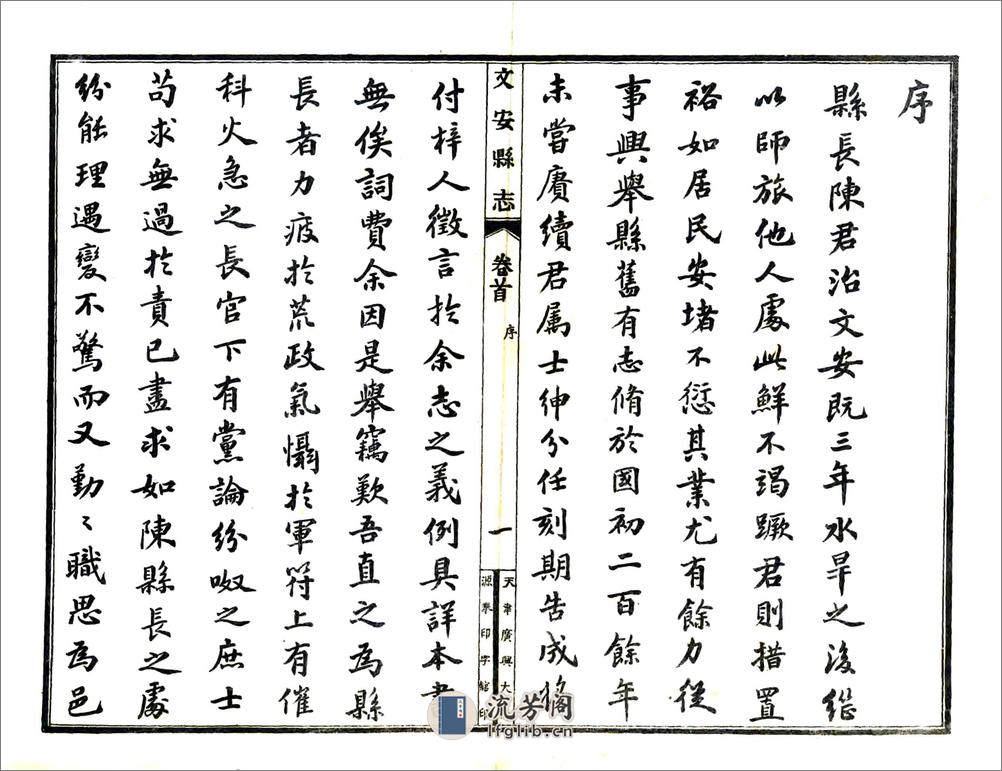 序
縣長陳君治文安既三年水旱之後繼
以師旅他人處此鮮不竭蹶君則措置
裕如居民安堵不愆其業尤有餘力從
事興舉縣舊有志脩於國初二百餘年
未嘗賡續君属士紳分任刻期告成將
文安縣志
卷首
序
一
天津廣興大
源泰印字館印
付梓人徵言於余志之義例具詳本書
無俟詞費余因是舉竊歎吾直之為縣
長者力疲於荒政氣懾於軍符上有催
科火急之長官下有黨論紛呶之庶士
苟求無過於責已盡求如陳縣長之處
紛能理遇變不驚而又勤〻職思為邑
流芳阁
lfglib.cn